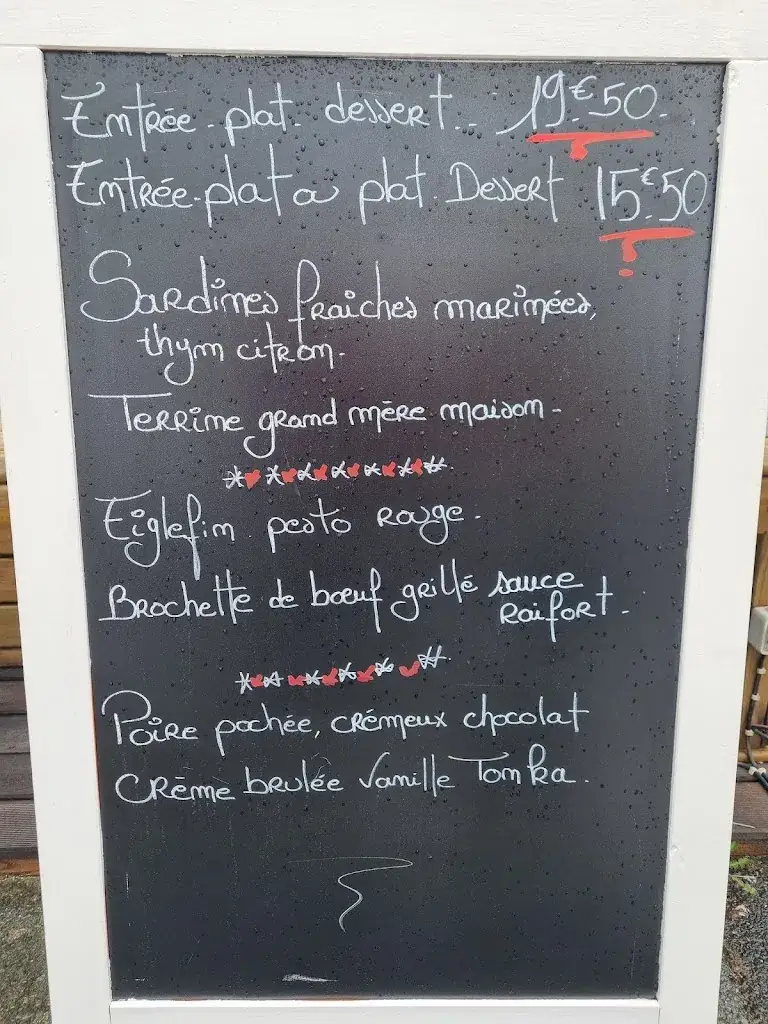 Entrée. plat. dessert.. 19€50.
Entrée.plat ou plat. Dessert 15€50
Sardines fraiches marinées,
thym citron.
Terrine grand mère maison.
Eiglefin pesto rouge.
Brochette de bœuf grillé sauce
raifort.
Poire pochée, crémeux chocolat
Crème brulée Vanille Tonka.